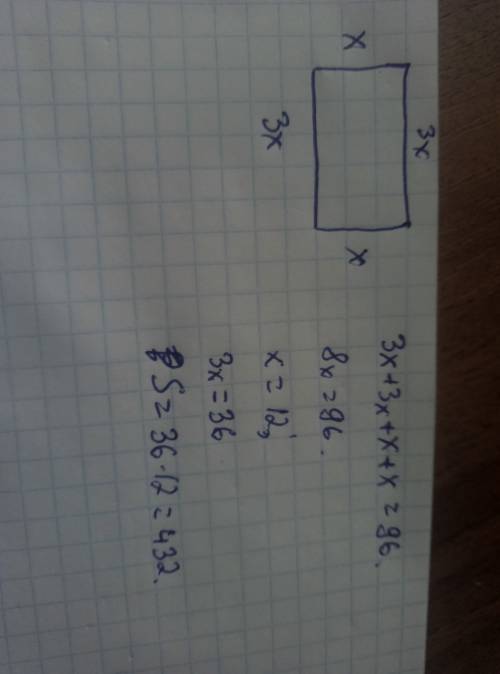 3x
x
x
3x
3x+3x+x+x=96.
8x=96.
x=12;
3x=36
S=36·12=432.